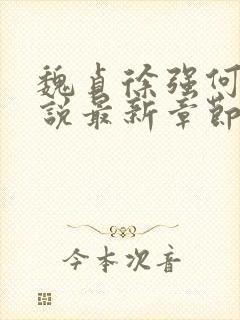 魏貞徐强何
說最新章節
今本次音